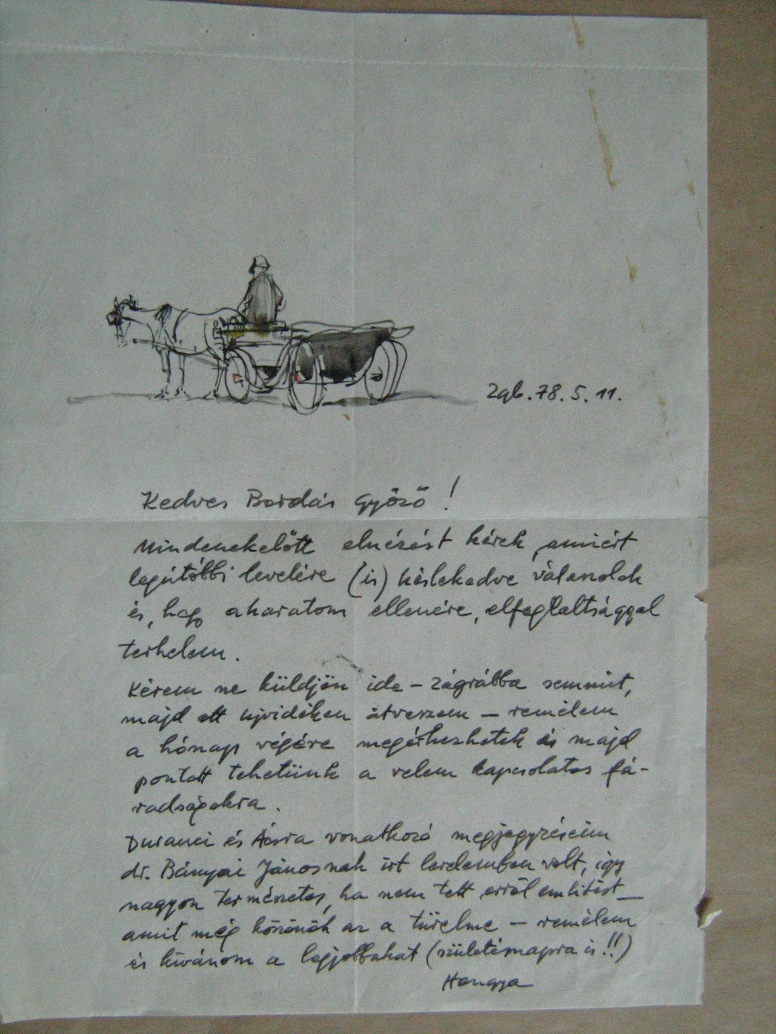 Zgb. 78. 5. 11.
Kedves Bordás Győző!
Mindenekelőtt elnézést kérek, amiért
legutóbbi levelére (is) késlekedve válaszolok
és, hogy akaratom ellenére, elfoglaltsággal
terhelem.
Kérem ne küldjön ide – Zágrábba semmit,
majd ott Ujvidéken átveszem – remélem
a hónap végére megérkezhetek és majd
pontot tehetünk a velem kapcsolatos fá-
radságokra.
Duranci és Ácsra vonatkozó megjegyzéseim
dr. Bányai Jánosnak írt levelemben volt, így
nagyon természetes, ha nem tett erről említést –
amit még az a türelme – remélem
és kívánom a legjobbakat (születésnapra is!!)
Hangya